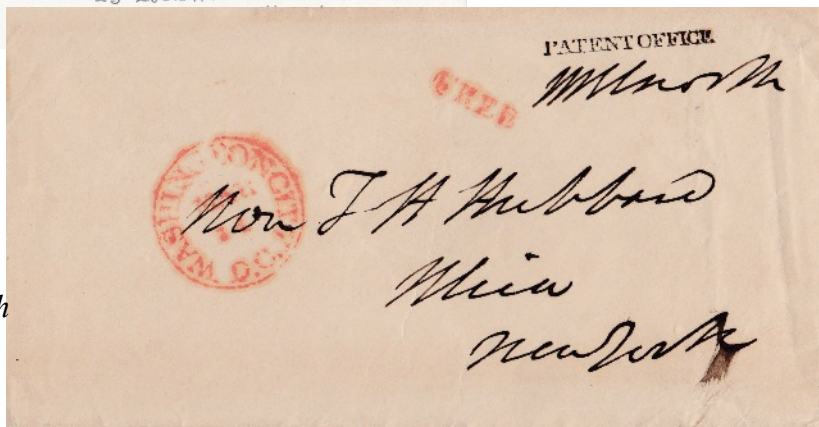 PATENT OFFICE
FREE
WASHINGTON CITY D.C.
Hon T H Hubbard
Utica
New York
h